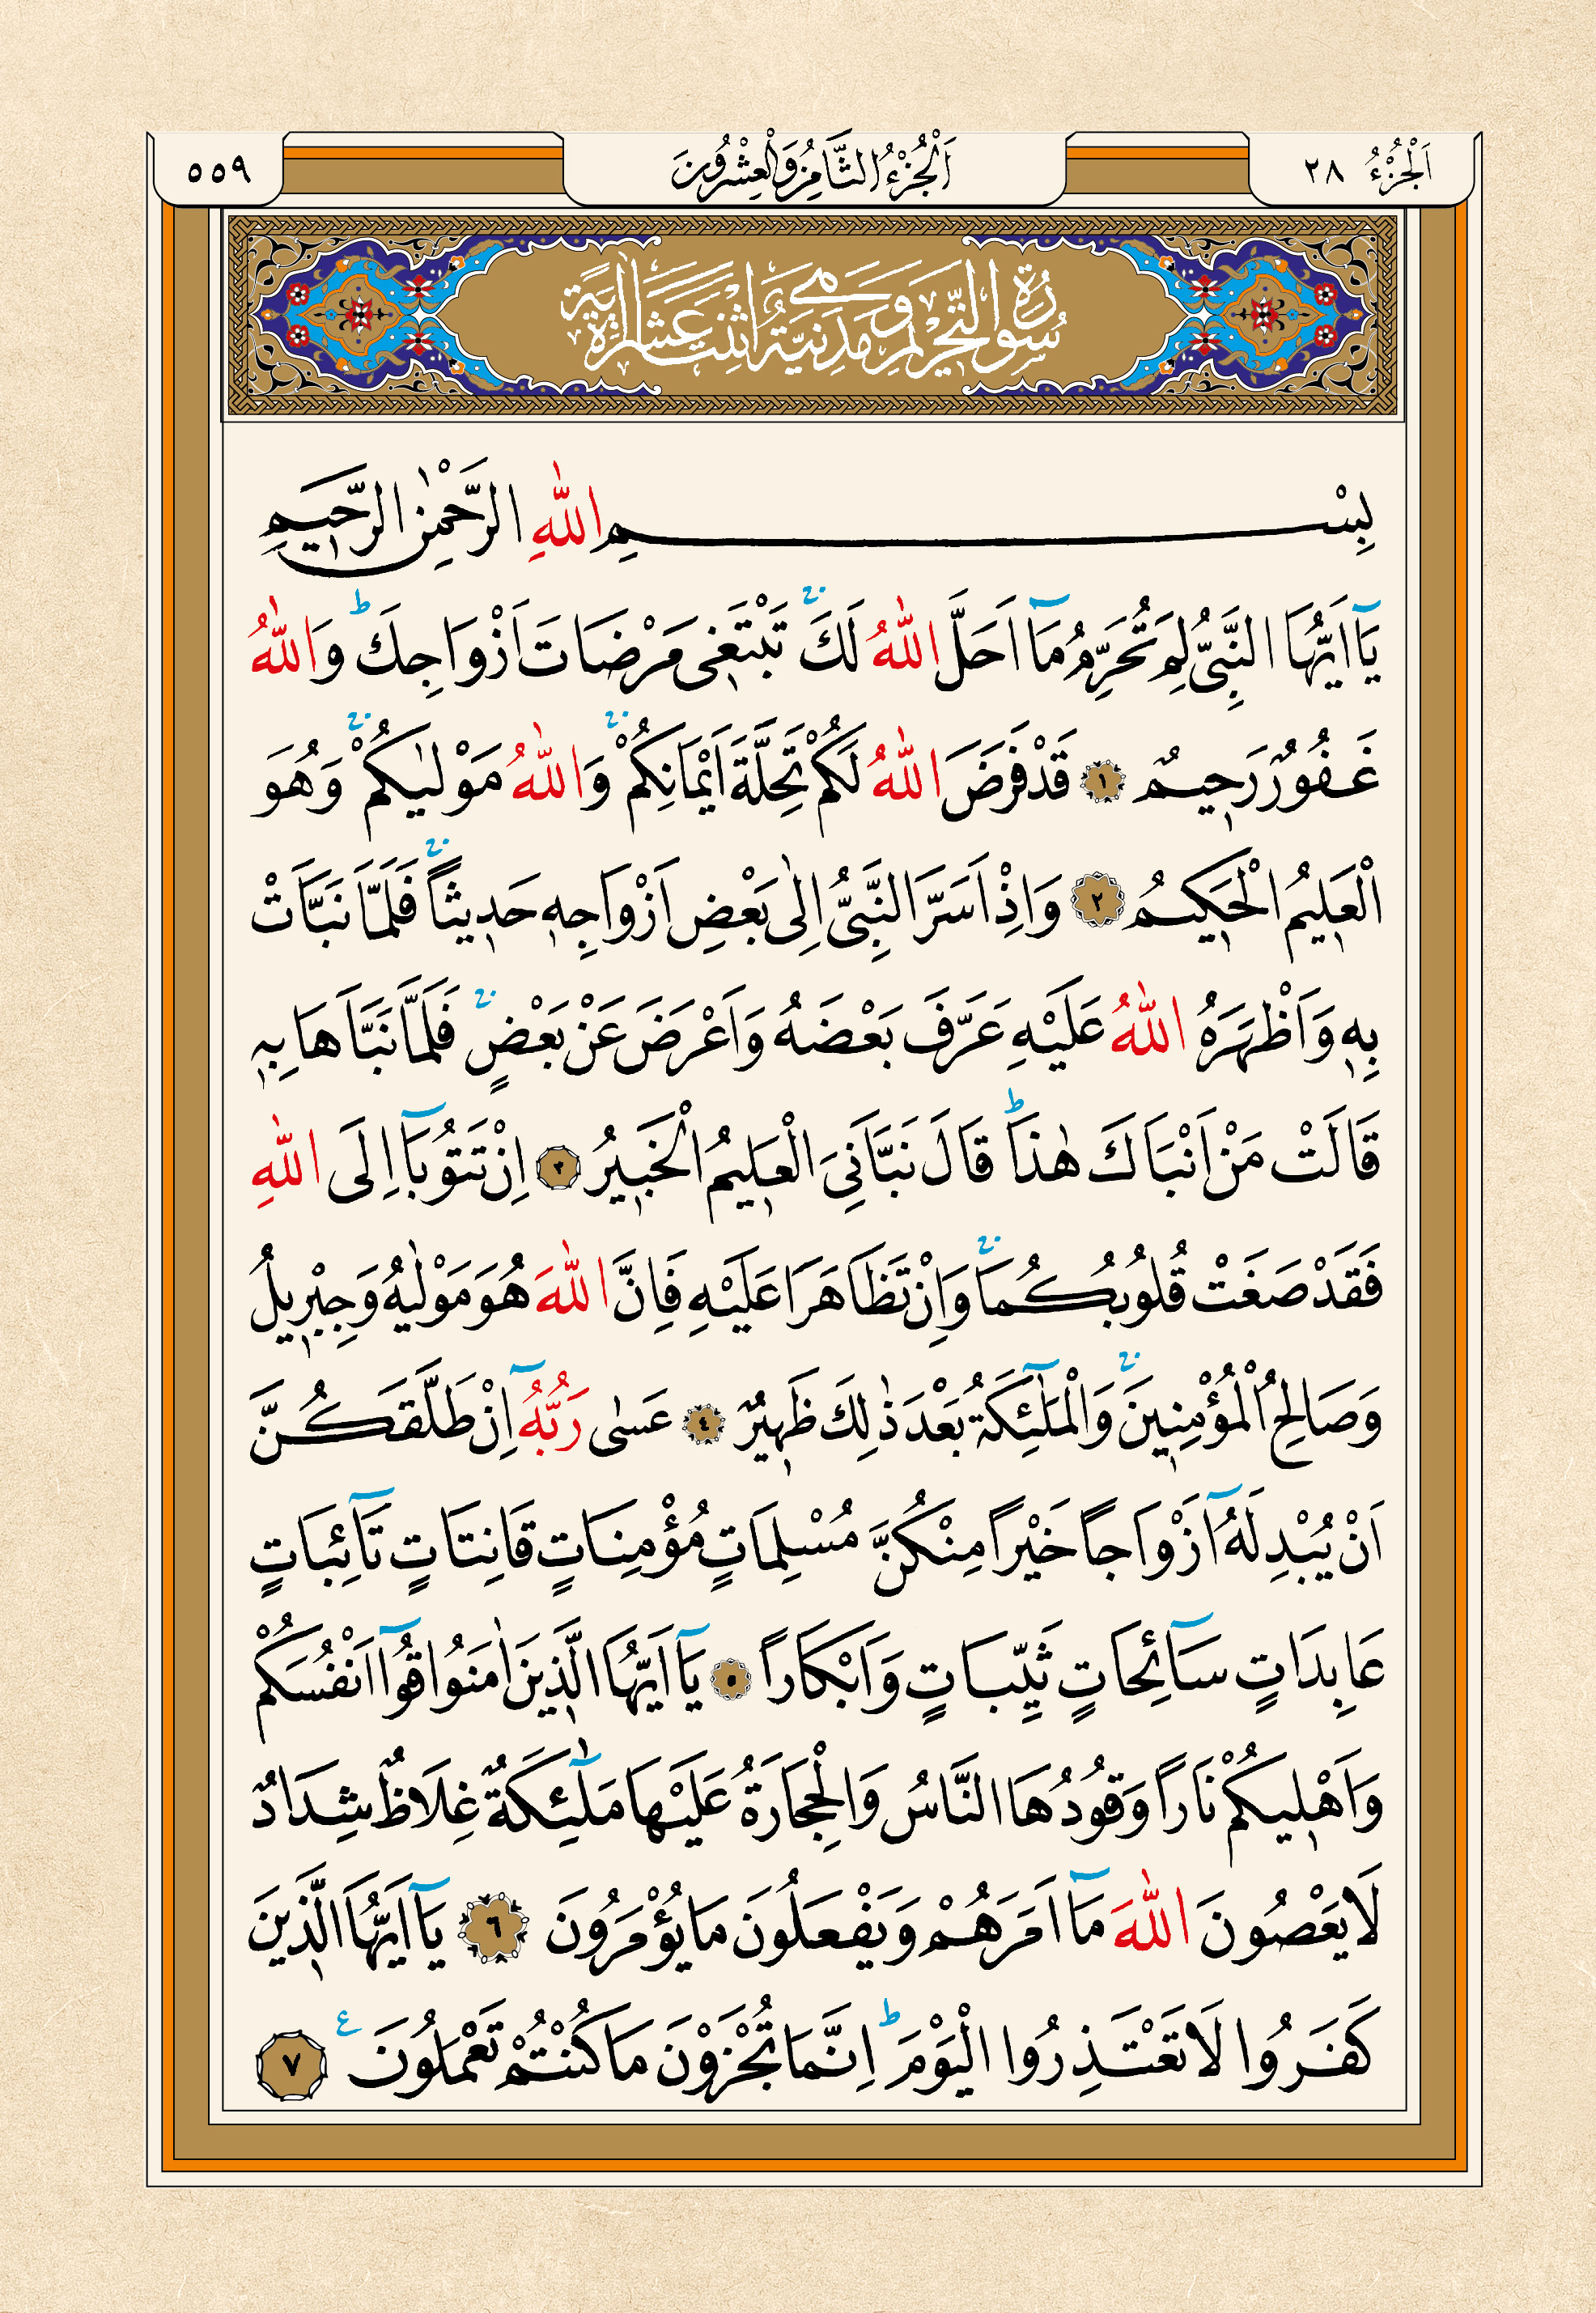 اَلْجُزْءُ ٢٨
اَلْجُزْءُ الثَّامِنُ وَالْعِشْرُونَ
٥٥٩
سُورَةُ التَّحْرِيمِ مَدَنِيَّةٌ وَهِيَ اثْنَتَا عَشْرَةَ اٰيَةً
بِسْمِ اللّٰهِ الرَّحْمٰنِ الرَّحِيمِ
يَٓا اَيُّهَا النَّبِيُّ لِمَ تُحَرِّمُ مَٓا اَحَلَّ اللّٰهُ لَكَۚ تَبْتَغٖي مَرْضَاتَ اَزْوَاجِكَۜ وَاللّٰهُ
غَفُورٌ رَحٖيمٌ ﴿١﴾ قَدْ فَرَضَ اللّٰهُ لَكُمْ تَحِلَّةَ اَيْمَانِكُمْۚ وَاللّٰهُ مَوْلٰيكُمْۚ وَهُوَ
الْعَلٖيمُ الْحَكٖيمُ ﴿٢﴾ وَاِذْ اَسَرَّ النَّبِيُّ اِلٰى بَعْضِ اَزْوَاجِهٖ حَدٖيثاًۚ فَلَمَّا نَبَّاَتْ
بِهٖ وَاَظْهَرَهُ اللّٰهُ عَلَيْهِ عَرَّفَ بَعْضَهُ وَاَعْرَضَ عَنْ بَعْضٍۚ فَلَمَّا نَبَّاَهَا بِهٖ
قَالَتْ مَنْ اَنْبَاَكَ هٰذَاۜ قَالَ نَبَّاَنِيَ الْعَلٖيمُ الْخَبٖيرُ ﴿٣﴾ اِنْ تَتُوبَٓا اِلَى اللّٰهِ
فَقَدْ صَغَتْ قُلُوبُكُمَاۚ وَاِنْ تَظَاهَرَا عَلَيْهِ فَاِنَّ اللّٰهَ هُوَ مَوْلٰيهُ وَجِبْرٖيلُ
وَصَالِحُ الْمُؤْمِنٖينَۚ وَالْمَلٰٓئِكَةُ بَعْدَ ذٰلِكَ ظَهٖيرٌ ﴿٤﴾ عَسٰى رَبُّهُٓ اِنْ طَلَّقَكُنَّ
اَنْ يُبْدِلَهُٓ اَزْوَاجاً خَيْراً مِنْكُنَّ مُسْلِمَاتٍ مُؤْمِنَاتٍ قَانِتَاتٍ تَٓائِبَاتٍ
عَابِدَاتٍ سَٓائِحَاتٍ ثَيِّبَاتٍ وَاَبْكَاراً ﴿٥﴾ يَٓا اَيُّهَا الَّذٖينَ اٰمَنُوا قُٓوا اَنْفُسَكُمْ
وَاَهْلٖيكُمْ نَاراً وَقُودُهَا النَّاسُ وَالْحِجَارَةُ عَلَيْهَا مَلٰٓئِكَةٌ غِلَاظٌ شِدَادٌ
لَا يَعْصُونَ اللّٰهَ مَٓا اَمَرَهُمْ وَيَفْعَلُونَ مَا يُؤْمَرُونَ ﴿٦﴾ يَٓا اَيُّهَا الَّذٖينَ
كَفَرُوا لَا تَعْتَذِرُوا الْيَوْمَۜ اِنَّمَا تُجْزَوْنَ مَا كُنْتُمْ تَعْمَلُونَ ع ﴿٧﴾